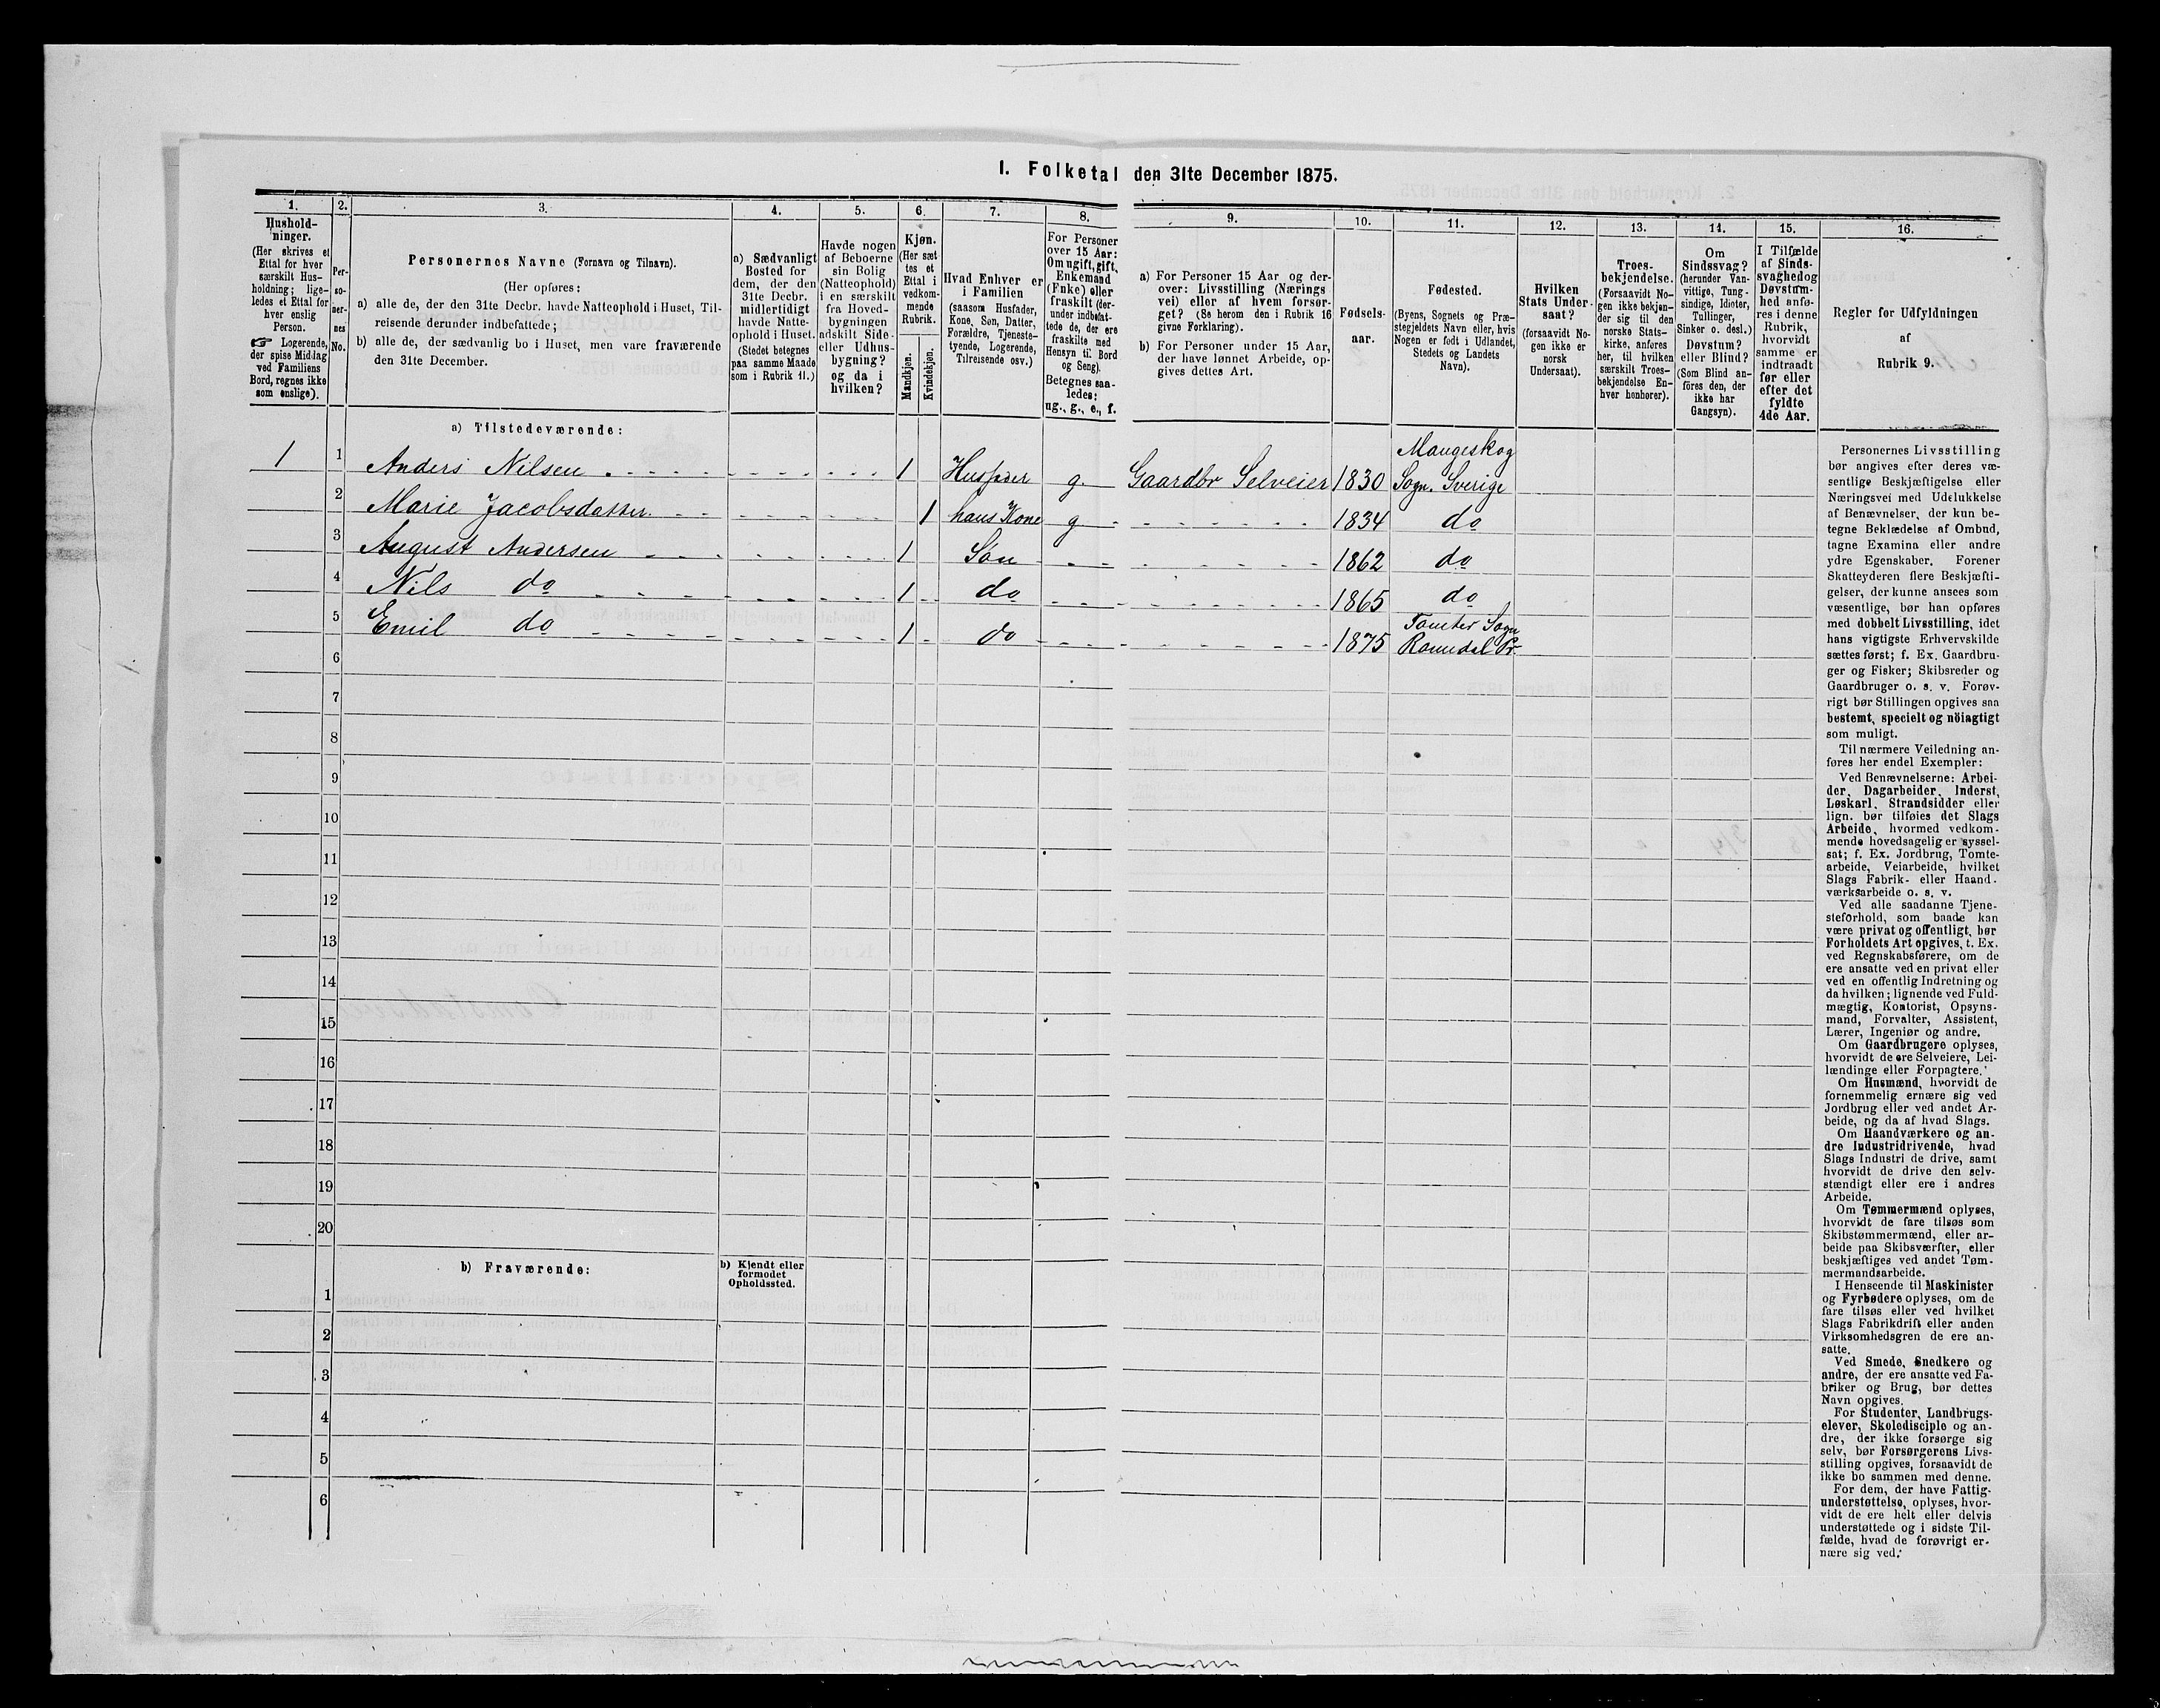 I. Folketal den 31te December 1875.
1. 2. 3. 4. 5. 6. 7. 8. 9. 10. 11. 12. 13. 14. 15. 16.
Hushold-
ninger.
(Her skrives et
Ettal for hver
særskilt Hus-
holdning; lige-
ledes et Ettal for
hver enslig
Person.
☞ Logerende,
der spise Middag
ved Familiens
Bord, regnes ikke
som enslige).
Per-
so-
ner-
nes
No.
Personernes Navne (Fornavn og Tilnavn).
(Her opføres:
a) alle de, der den 31te Decbr. havde Natteophold i Huset, Til-
reisende derunder indbefattede;
b) alle de, der sædvanlig bo i Huset, men vare fraværende
den 31te December.
a) Sædvanligt
Bosted for
dem, der den
31te Decbr.
midlertidigt
havde Natte-
ophold i Huset.
(Stedet betegnes
paa samme Maade
som i Rubrik 11.)
Havde nogen
af Beboerne
sin Bolig
(Natteophold)
i en særskilt
fra Hoved-
bygningen
adskilt Side-
eller Udhus-
bygning?
og da i
hvilken?
Kjøn.
(Her sæt
tes et
Ettal i
vedkom-
mende
Rubrik.
Mandkjøn.
Kvindekjøn.
Hvad Enhver er
i Familien
(saasom Husfader,
Kone, Søn, Datter,
Forældre, Tjeneste-
tyende, Logerende,
Tilreisende osv.)
For Personer
over 15 Aar:
Om ugift, gift,
Enkemand
(Enke) eller
fraskilt (der-
under indbefat-
tede de, der ere
fraskilte med
Hensyn til Bord
og Seng).
Betegnes saa-
ledes:
ug., g., e., f.
a) For Personer 15 Aar og der-
over: Livsstilling (Nærings
vei) eller af hvem forsør-
get? (Se herom den i Rubrik 16
givne Forklaring).
b) For Personer under 15 Aar,
der have lønnet Arbeide, op-
gives dettes Art.
Fødsels-
aar.
Fødested.
(Byens, Sognets og Præ-
stegjeldets Navn eller, hvis
Nogen er født i Udlandet,
Stedets og Landets
Navn).
Hvilken
Stats Under-
saat?
(forsaavidt No-
gen ikke er
norsk
Undersaat).
Troes-
bekjendelse.
(Forsaavidt No-
gen ikke bekjen-
der sig til den
norske Stats-
kirke, anføres
her, til hvilken
særskilt Troes-
bekjendelse En-
hver henhører).
Om
Sindssvag?
(herunder Van-
vittige, Tung-
sindige, Idioter,
Tullinger,
Sinker o. desl.)
Døvstum?
eller Blind?
(Som Blind an-
föres den, der
ikke har
Gangsyn).
I Tilfælde
af Sinds-
svaghed og
Døvstum-
hed anfø-
res i denne
Rubrik,
hvorvidt
samme er
indtraadt
før eller
efter det
fyldte
4de Aar.
Regler for Udfyldningen
af
Rubrik 9.
a) Tilstedeværende:
1 1 Anders Nilsen 1 Husfader g. Gaardbr Selveier 1830 Mangeskog
Sogn. Sverige
2 Marie Jacobsdatter. 1 hans Kone g 1834 do
3 August Andersen 1 Søn 1862 do
4 Nils do 1 do 1865 do
5 Emil do 1 do 1875 Tomter Sogn
Romedal Pr
6
7
8
9
10
11
12
13
14
15
16
17
18
19
20
b) Fraværende:
b) Kjendt eller
formodet
Opholdssted.
1
2
3
4
5
6
Personernes Livsstilling
bør angives efter deres væ-
sentlige Beskjæftigelse eller
Næringsvei med Udelukkelse
af Benævnelser, der kun be-
tegne Beklædelse af Ombud,
tagne Examina eller andre
ydre Egenskaber. Forener
Skatteyderen flere Beskjæfti-
gelser, der kunne ansees som
væsentlige, bør han opføres
med dobbelt Livsstilling, idet
hans vigtigste Erhvervskilde
sættes først; f. Ex. Gaardbru-
ger og Fisker; Skibsreder og
Gaardbruger o. s. v. Forøv-
rigt bør Stillingen opgives saa
bestemt, specielt og nöiagtigt
som muligt.
Til nærmere Veiledning an-
føres her endel Exempler:
Ved Benævnelserne: Arbei-
der, Dagarbeider, Inderst,
Løskarl, Strandsidder eller
lign. bør tilføies det Slags
Arbeide, hvormed vedkom-
mende hovedsagelig er syssel-
sat; f. Ex. Jordbrug, Tomte-
arbeide, Veiarbeide, hvilket
Slags Fabrik- eller Haand-
værksarbeide o. s. v.
Ved alle saadanne Tjene-
steforhold, som baade kan
være privat og offentligt, bør
Forholdets Art opgives, t. Ex.
ved Regnskabsførere, om de
ere ansatte ved en privat eller
ved en offentlig Indretning og
da hvilken; lignende ved Fuld-
mægtig, Kontorist, Opsyns-
mand, Forvalter, Assistent,
Lærer, Ingeniør og andre.
Om Gaardbrugere oplyses,
hvorvidt de ere Selveiere, Lei-
lændinge eller Forpagtere.
Om Husmænd, hvorvidt de
fornemmelig ernære sig ved
Jordbrug eller ved andet Ar-
beide, og da af hvad Slags.
Om Haandværkere og an-
dre Industridrivende, hvad
Slags Industri de drive, samt
hvorvidt de drive den selv-
stændigt eller ere i andres
Arbeide.
Om Tømmermænd oplyses,
hvorvidt de fare tilsøs som
Skibstømmermænd, eller ar-
beide paa Skibsværfter, eller
beskjæftiges ved andet Tøm-
mermandsarbeide.
I Henseende til Maskinister
og Fyrbødere oplyses, om de
fare tilsøs eller ved hvilket
Slags Fabrikdrift eller anden
Virksomhedsgren de ere an-
satte.
Ved Smede, Snedkere og
andre, der ere ansatte ved Fa-
briker og Brug, bør dettes
Navn opgives.
For Studenter, Landbrugs-
elever, Skoledisciple og an-
dre, der ikke forsørge sig
selv, bør Forsørgerens Livs-
stilling opgives, forsaavidt de
ikke bo sammen med denne.
For dem, der have Fattig-
understøttelse, oplyses, hvor-
vidt de ere helt eller delvis
understøttede og i sidste Til-
fælde, hvad de forøvrigt er-
nære sig ved.